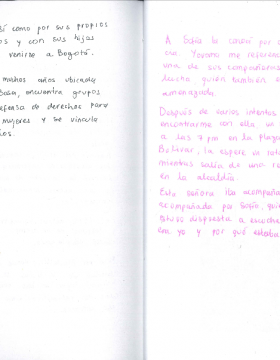 así como por sus propios
os y con sus hijas
venirse a Bogotá.
muchos años ubicada
Bosa, encuentra grupos
efensa de derechos para
mujeres y se vincula
A Sofía la conocí por
cia. Yovana me
una de sus compañeras
lucha quién también
amenazada.
Después de varios intentos
encontrarme con ella
a las 7 pm en la Plaza
Bolívar, la espere
mientras salía de una
en la alcaldía.
Esta señora iba
acompañada por Sofía,
estuvo dispuesta a
era yo y por qué estaba